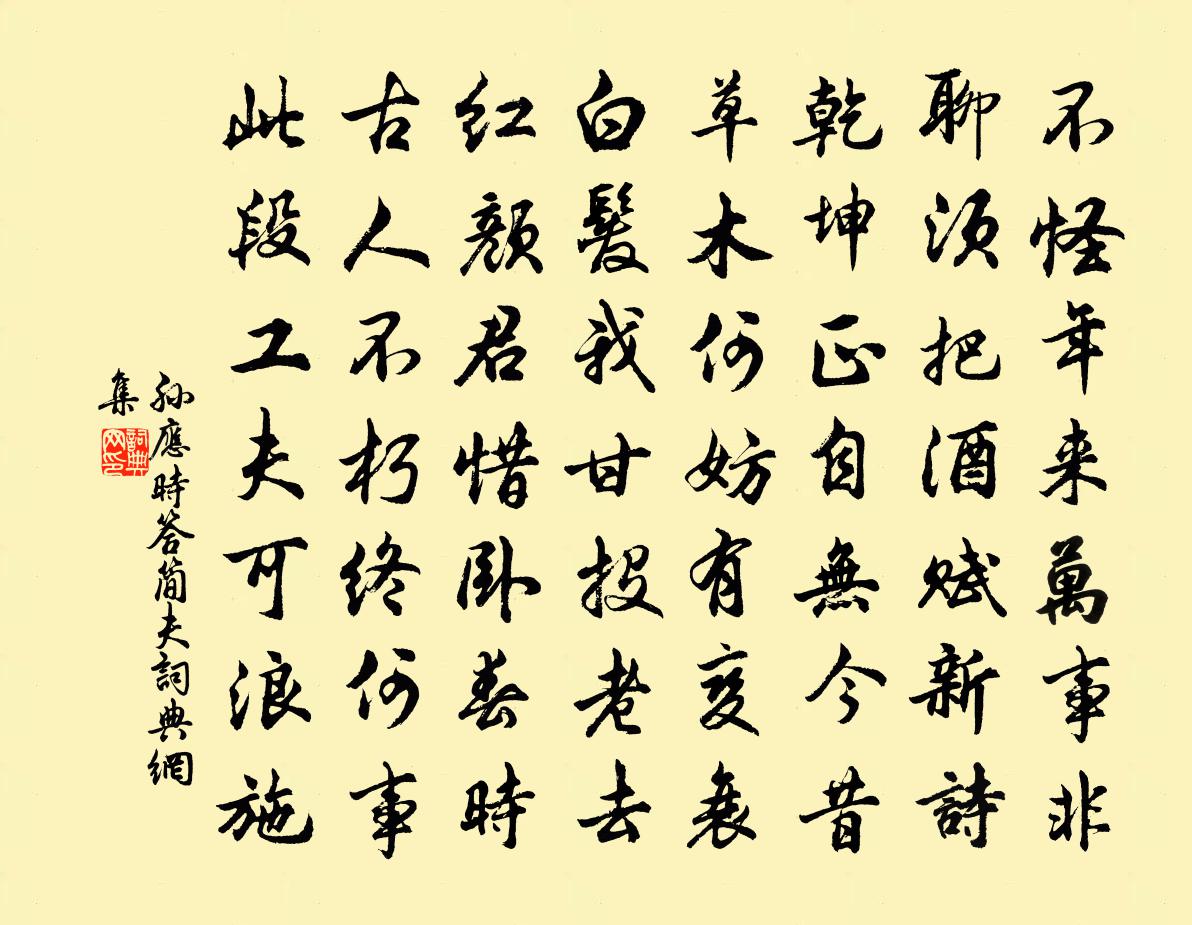 不怪年来萬事非
聊須把酒賦新詩
乾坤正自無今昔
草木何妨有变衰
白髮我甘投老去
红顏君惜卧春時
古人不朽终何事
此段工夫可浪施
孙應時答简夫詞典網
集
詞典
网印